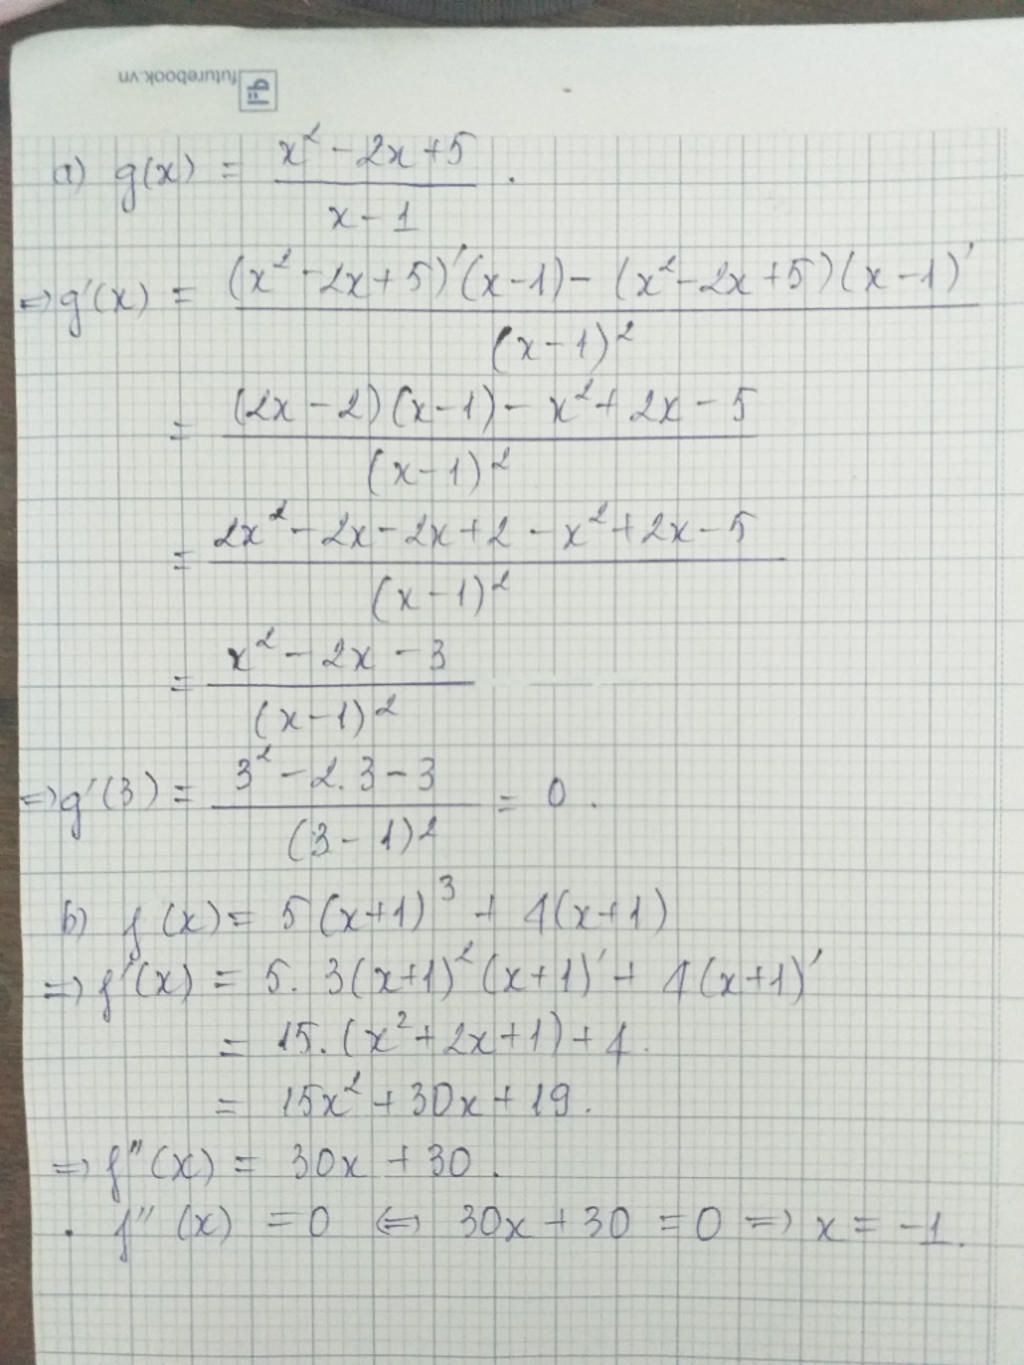 futurebook.vn
a) g(x) = \frac{x^2 - 2x + 5}{x - 1} .
=> g'(x) = \frac{(x^2 - 2x + 5)'(x - 1) - (x^2 - 2x + 5)(x - 1)'}{(x - 1)^2}
= \frac{(2x - 2)(x - 1) - x^2 + 2x - 5}{(x - 1)^2}
= \frac{2x^2 - 2x - 2x + 2 - x^2 + 2x - 5}{(x - 1)^2}
= \frac{x^2 - 2x - 3}{(x - 1)^2}
=> g'(3) = \frac{3^2 - 2.3 - 3}{(3 - 1)^2} = 0 .
b) f(x) = 5(x+1)^3 + 4(x+1)
=> f'(x) = 5. 3(x+1)^2 (x+1)' + 4(x+1)'
= 15. (x^2 + 2x + 1) + 4.
= 15x^2 + 30x + 19.
=> f''(x) = 30x + 30 .
. f''(x) = 0 <=> 30x + 30 = 0 => x = -1.